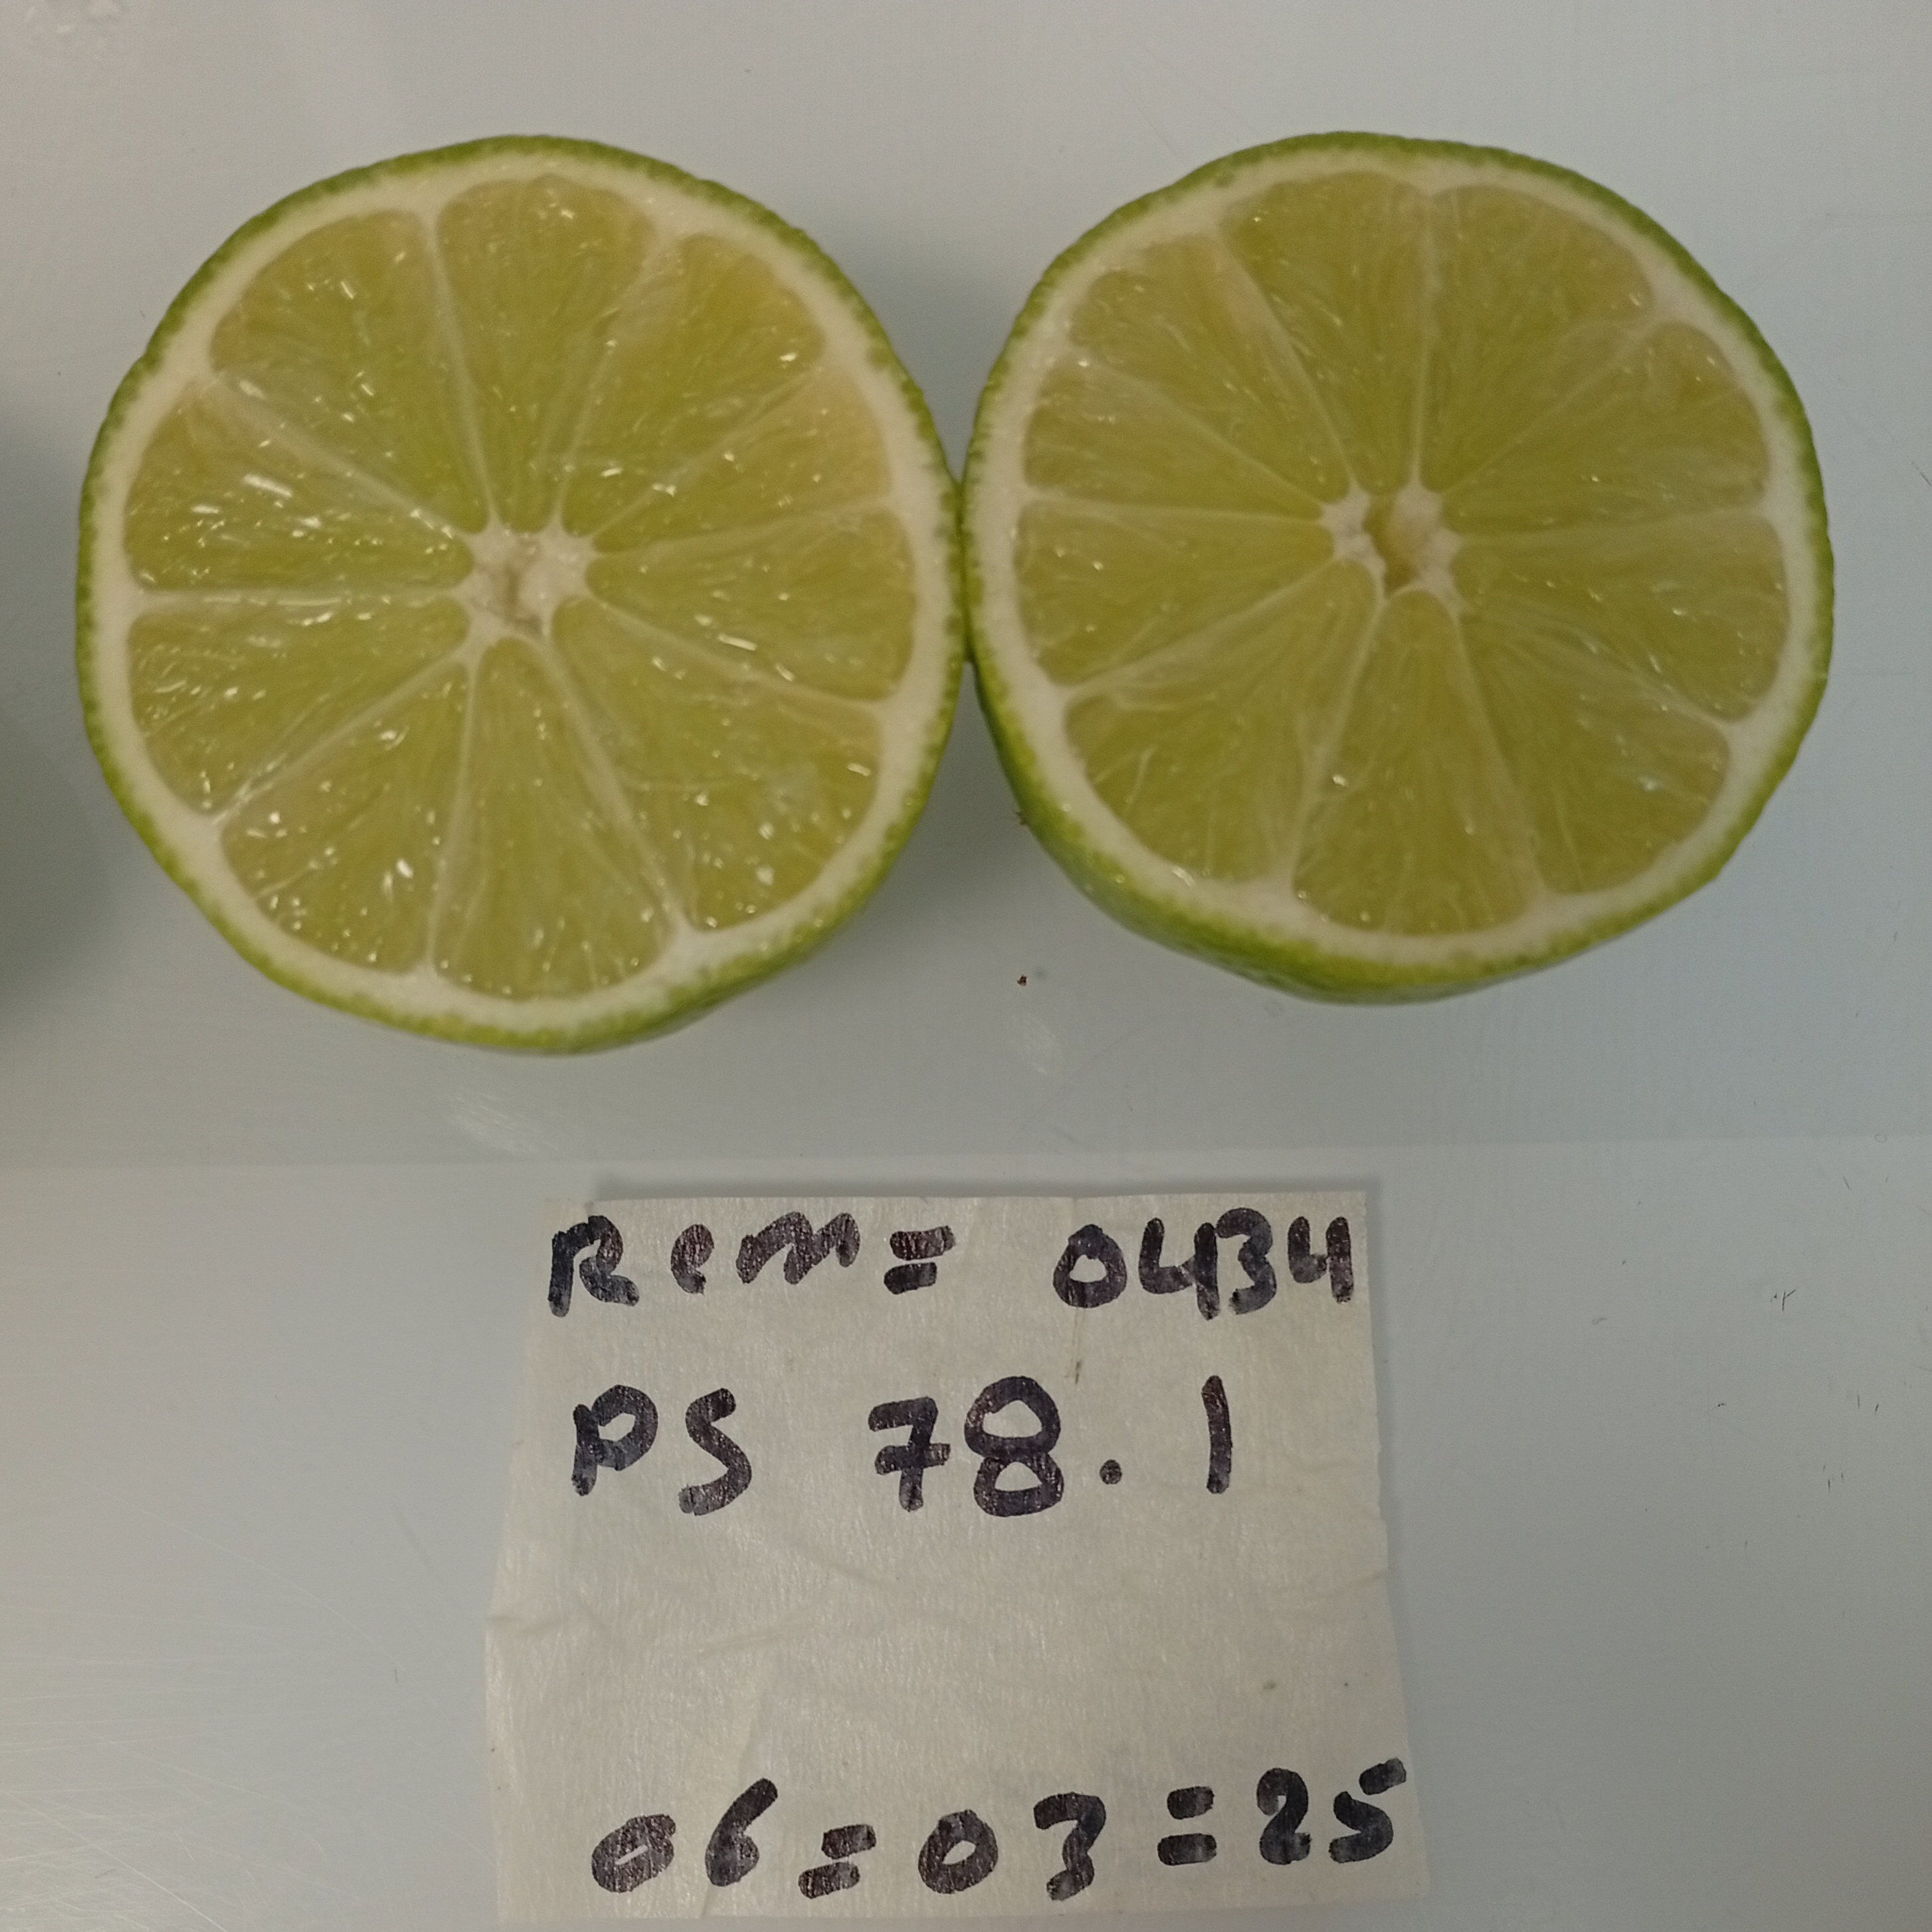 Rem= 0434
PS 78.1
06=03=25